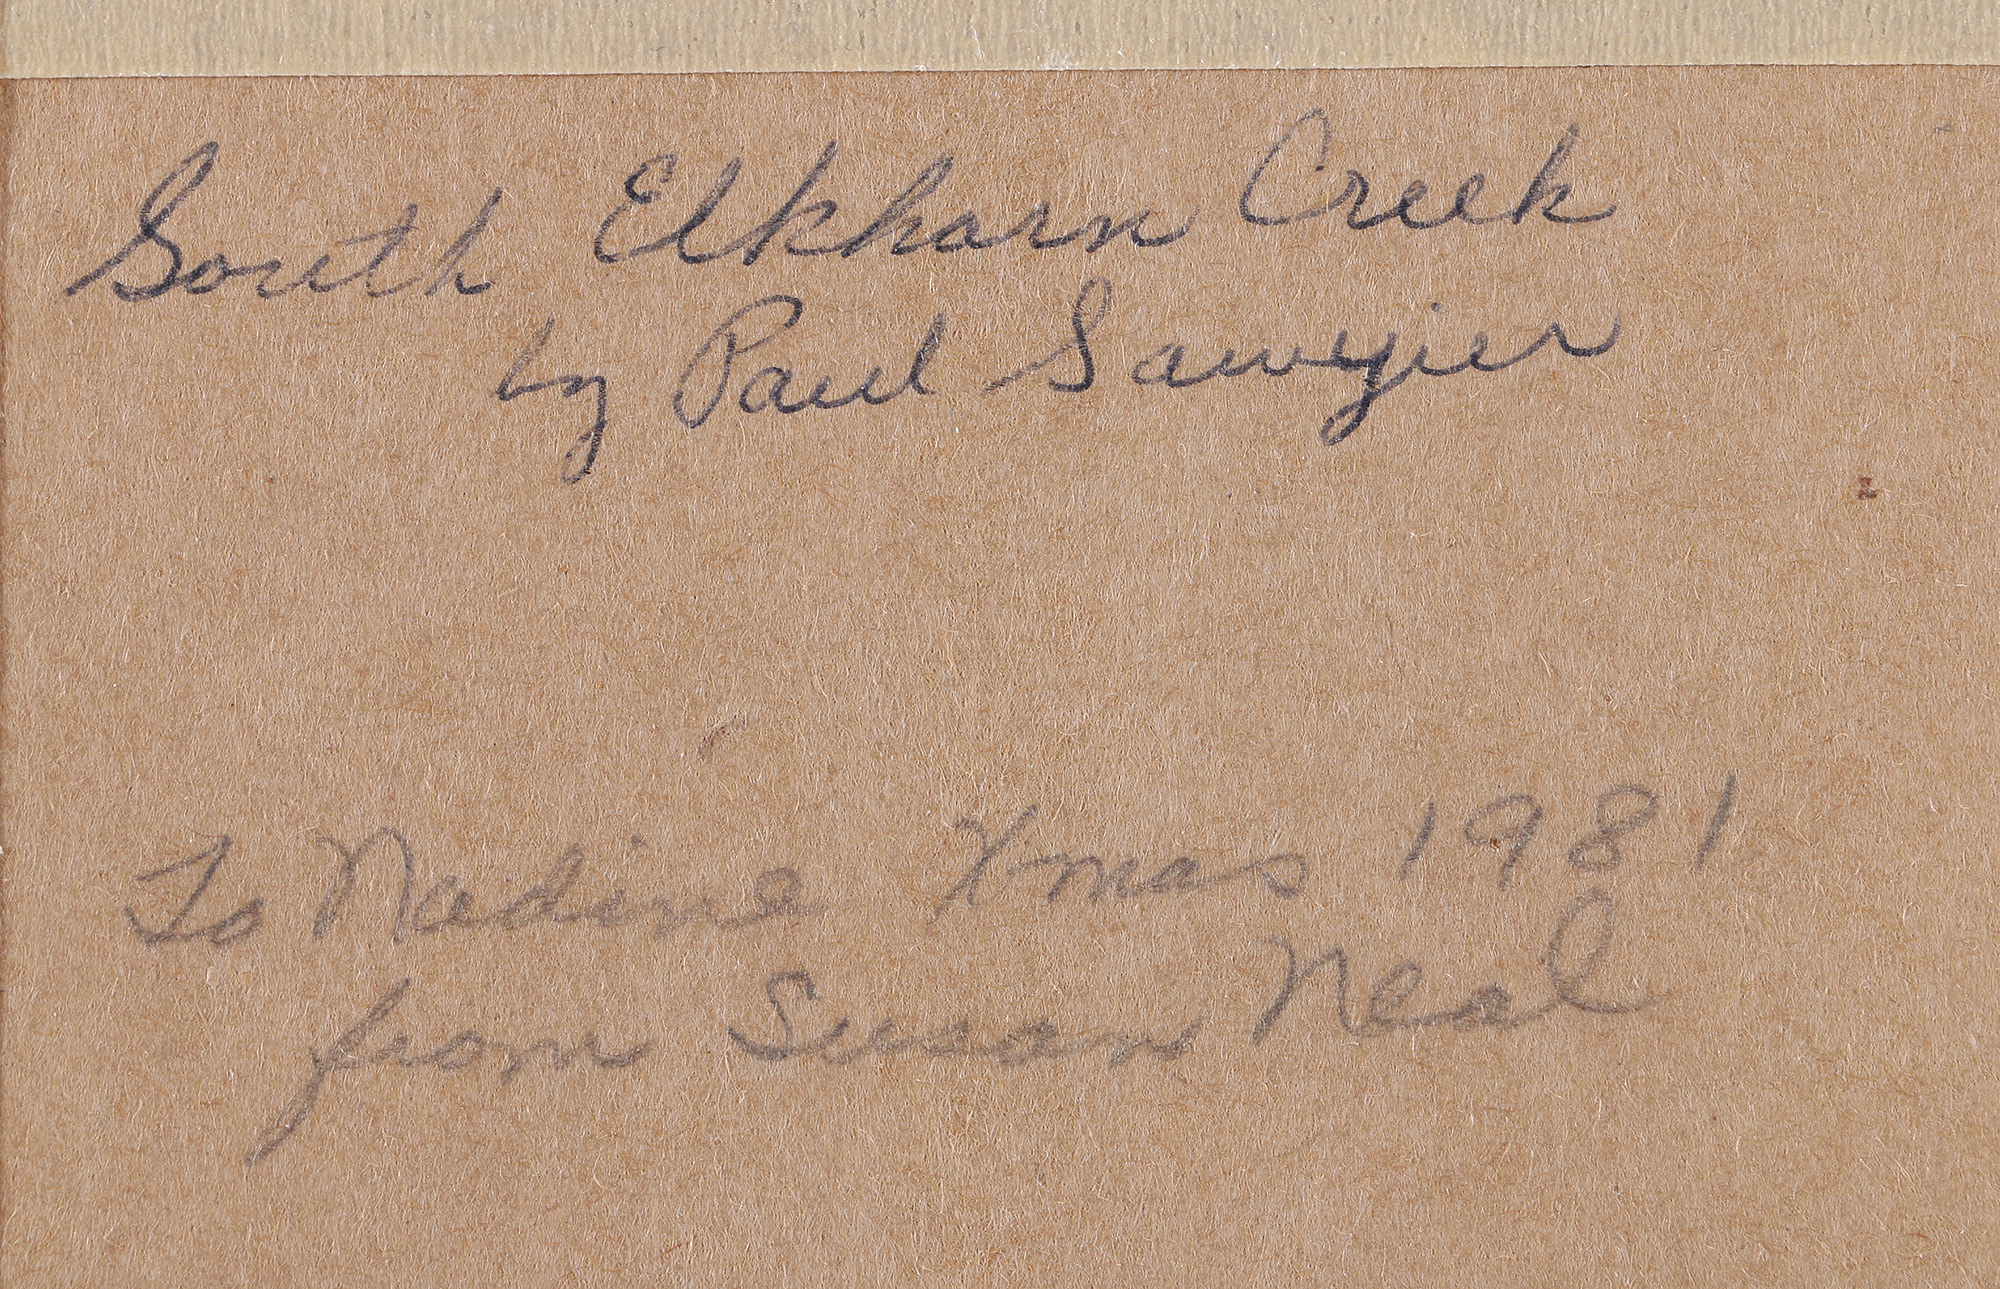 South Elkhorn Creek
by Paul Sawyier
To Nadine Xmas 1981
from Susan Neal